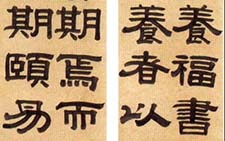 養福書
養者以
期焉而
期頤易